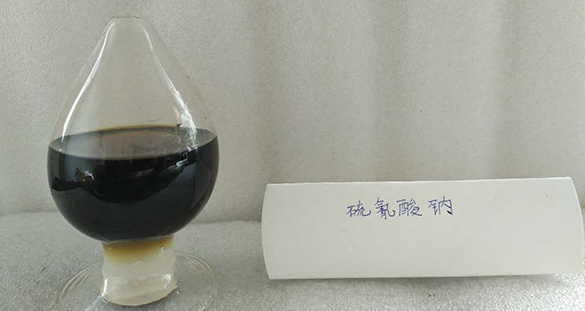 硫氰酸钠